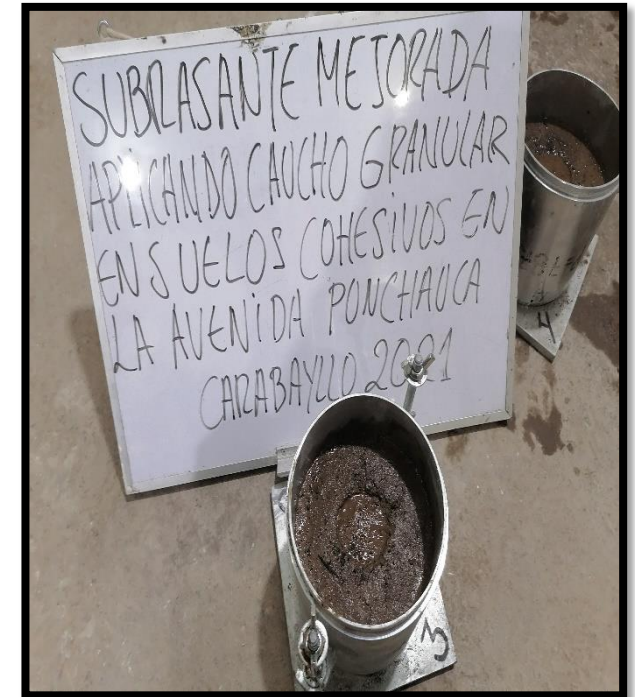 SUBRASANTE MEJORADA
APLICANDO CAUCHO GRANULAR
EN SUELOS COHESIVOS EN
LA AVENIDA PONCHAUCA
CARABAYLLO 2021
3
4